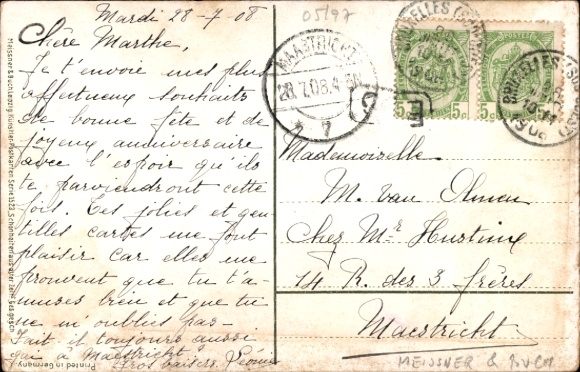 Mardi 28-7-08
Chère Marthe,
Je t'envoie mes plus
affectueux souhaits
de bonne fête et de
joyeux anniversaire
avec l'espoir qu'ils
te parviendront cette
fois. Tes jolies et gen
tilles cartes me font
plaisir car elles me
prouvent que tu t'a-
muses bien et que tu
ne m'oublis pas-
Fait il toujours aussi
gai à Maestricht
Gros baisers. Léonie
Printed in Germany
Meissner & Buch, Leipzig, Künstler-Postkarten, Serie
05/97
MAASTRICHT
28.7.08.4
7
5c 5c 5c
BRUXELLES
BRUXELLES
E C
Mademoiselle
M. Van Olmen
Chez Mr Hustinx
14 R. des 3 frères
Maestricht
MEISSNER & BUCH